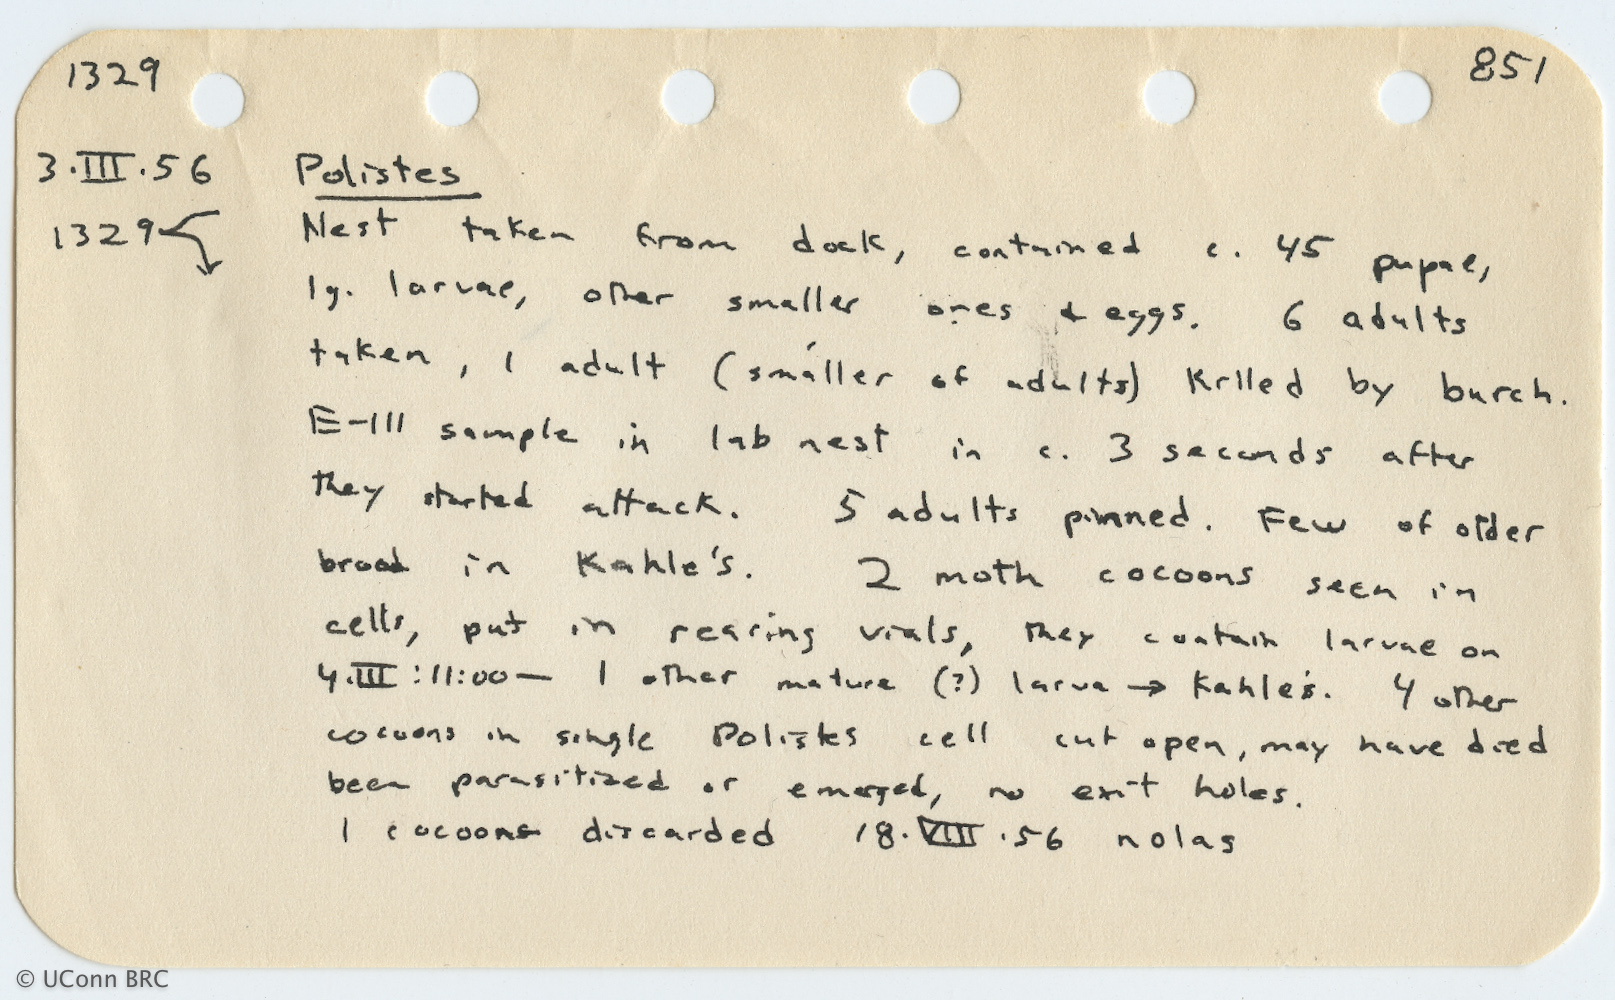 1329 851
3.III.56 Polistes
1329 Nest taken from dock, contained c. 45 pupae,
lg. larvae, other smaller ones & eggs. 6 adults
taken, 1 adult (smaller of adults) killed by burch.
E-III sample in lab nest in c. 3 seconds after
they started attack. 5 adults pinned. Few of older
brood in Kahle's. 2 moth cocoons seen in
cells, put in rearing vials, they contain larvae on
4.III:11:00— 1 other mature (?) larva → Kahle's. 4 other
cocoons in single Polistes cell cut open, may have died
been parasitized or emerged, no exit holes.
1 cocoons discarded 18.VIII.56 nolas
© UConn BRC